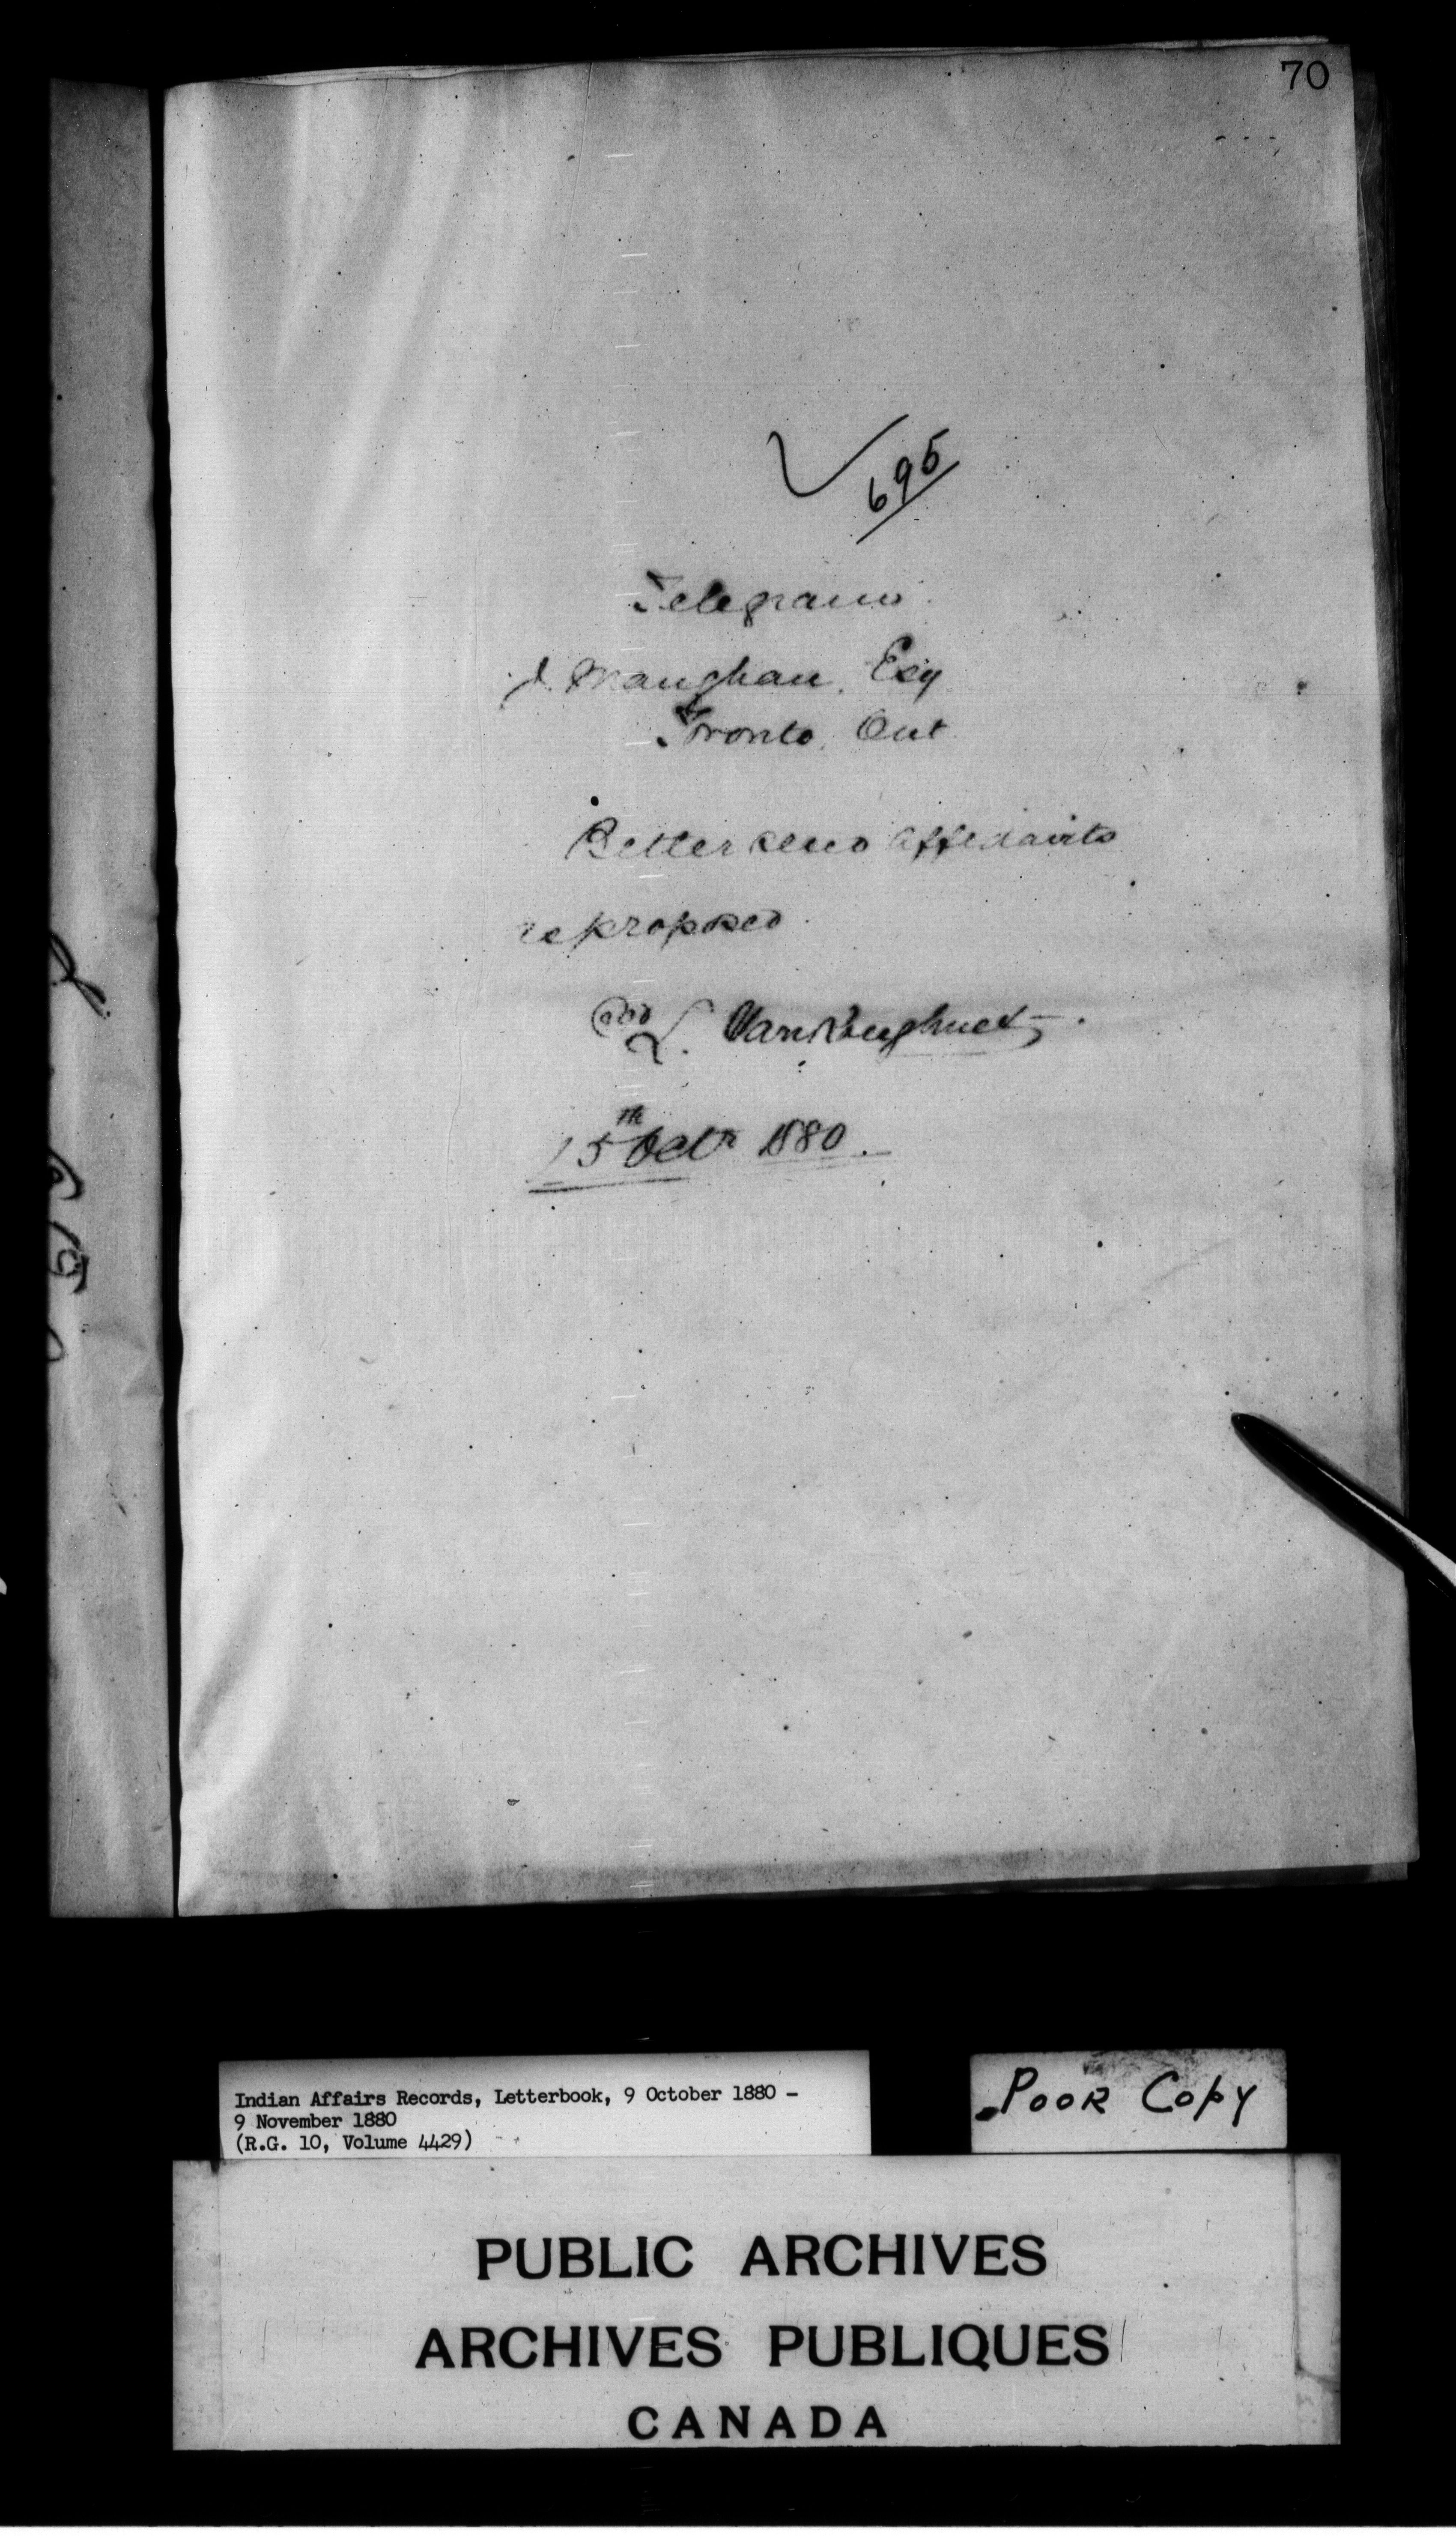 70
695
Telegram
J. Maughan, Esq
Toronto, Ont
Better send affidavits
re proposed
Sgd L. VanKoughnet
15th Octr 1880.
Indian Affairs Records, Letterbook, 9 October 1880 -
9 November 1880
(R.G. 10, Volume 4429)
Poor Copy
PUBLIC ARCHIVES
ARCHIVES PUBLIQUES
CANADA